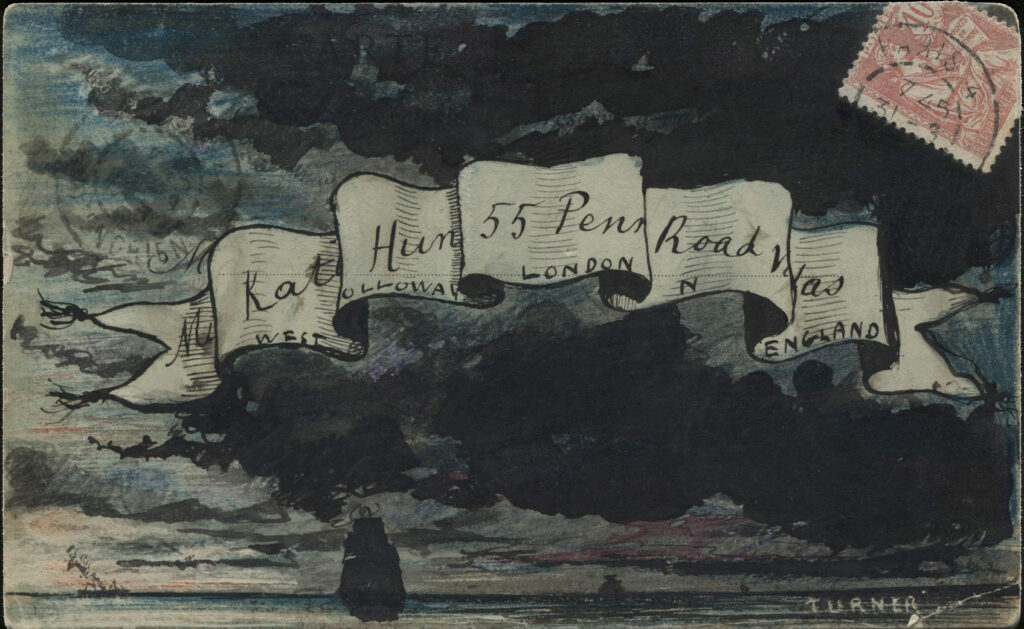 CARTE
Kat Hun 55 Penn Road Vas
WEST OLLOWAY LONDON N ENGLAND
TURNER